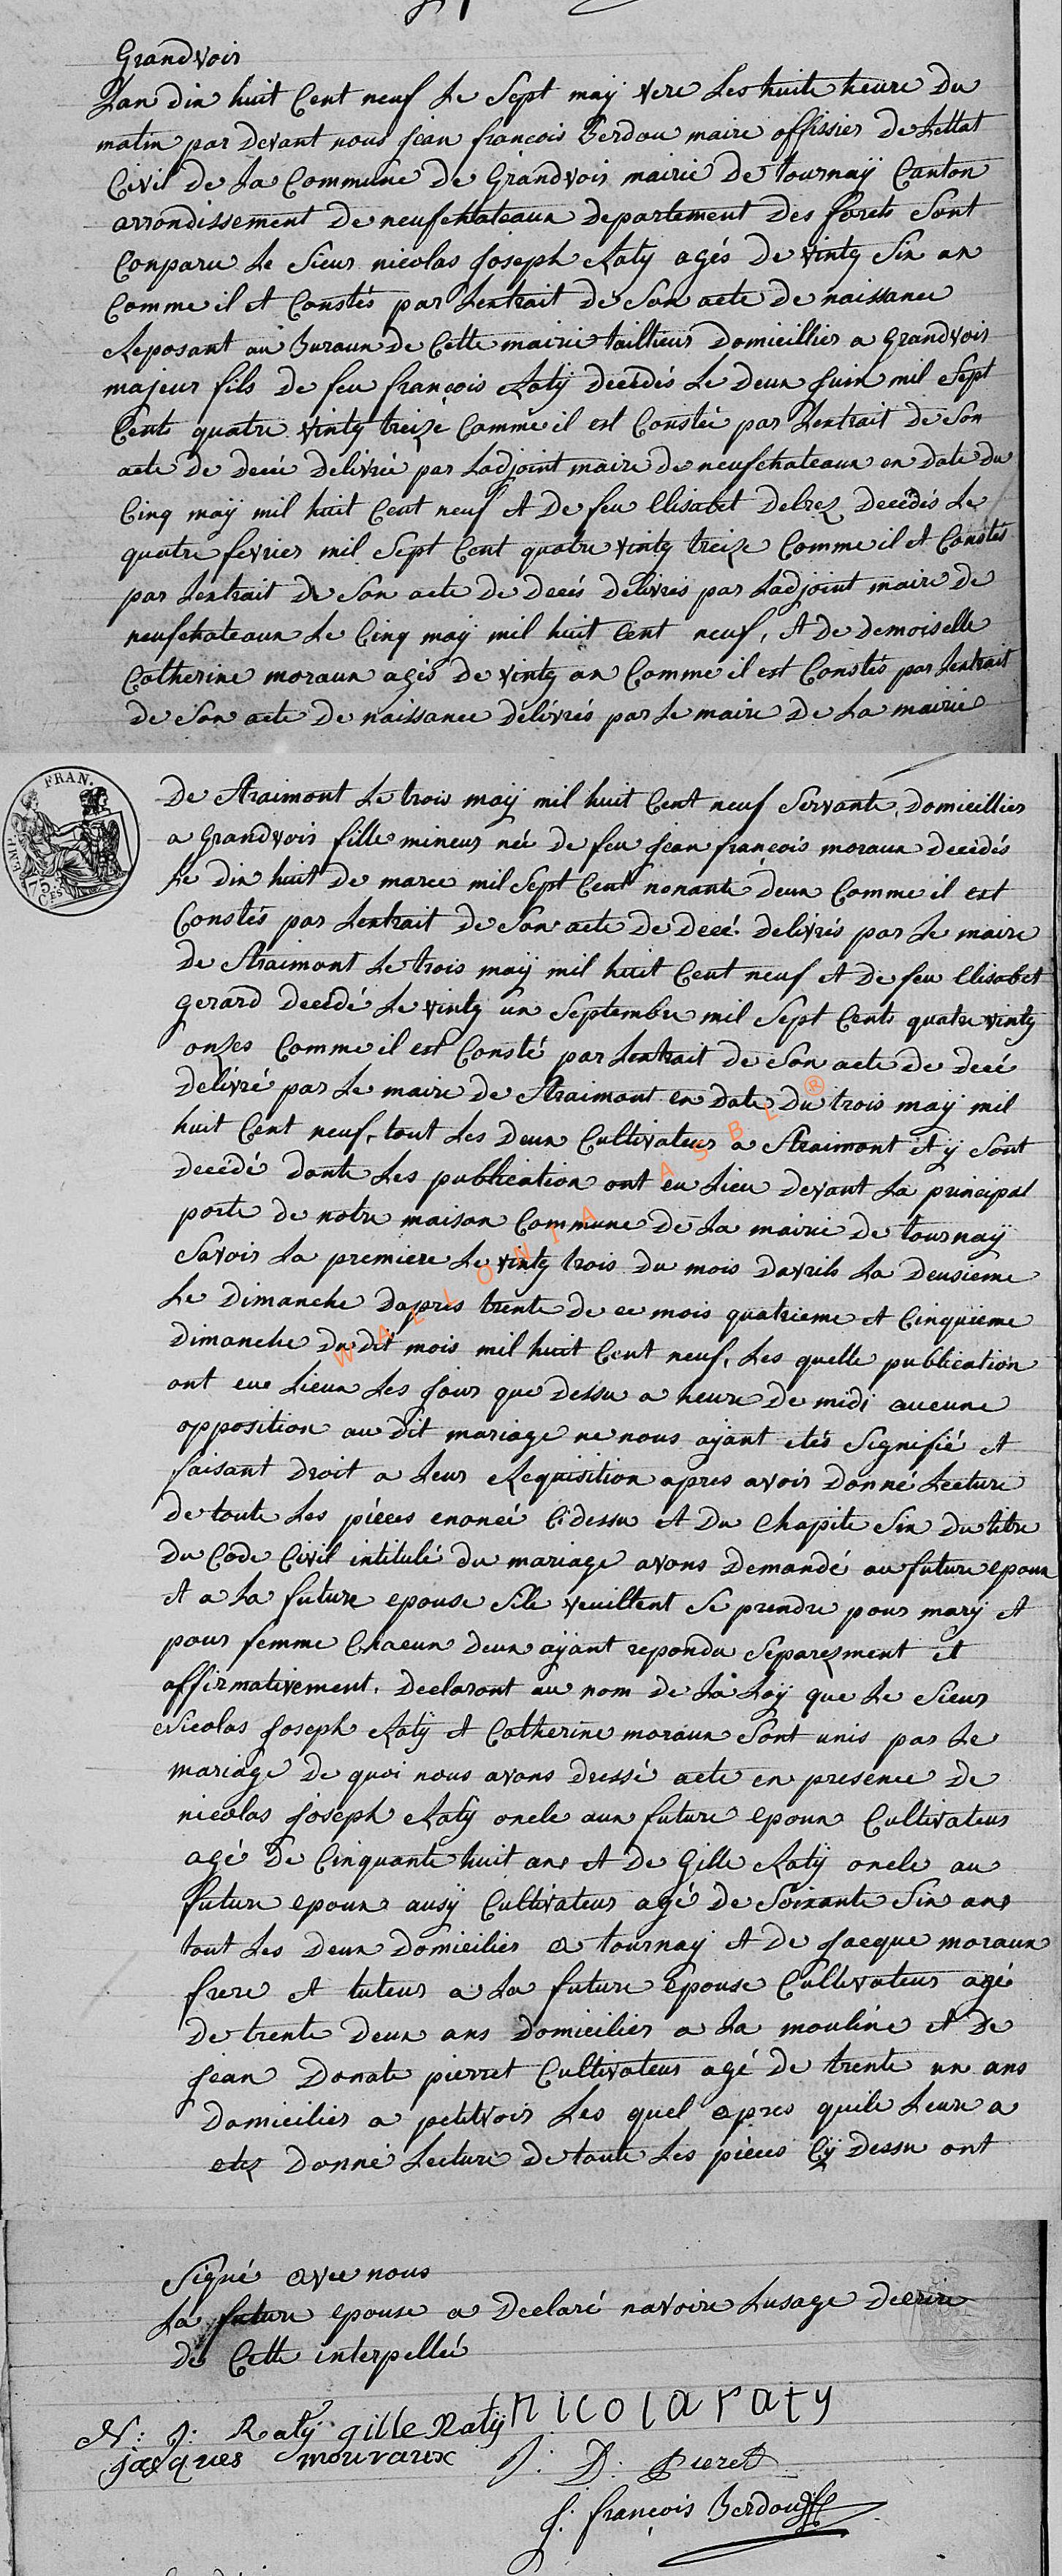 Grandvois
Lan dix huit Cent neuf Le Sept maÿ vere Les huite heure Du
matin par Devant nous Jean francois Berdou maire offissier De Lettat
Civil De La Commune De Grandvois mairie De tournaÿ Canton
arrondissement De neufchateaux Departement Des forets Sont
Conparu Le Sieur nicolas Joseph Raty agés De vintg Six an
Comme il et Constés par Lextrait de Son acte De naissance
Reposant au Buraux De Cette mairie taillieur Domicillier a Grandvois
majeur fils De feu françois Ratÿ Decédés Le Deux Juin mil Sept
Cents quatre vintg treize Comme il est Constée par Lextrait De Son
acte De Decée Delivrée par Ladjoint maire De neufchateaux en Date Du
Cinq maÿ mil huit Cent neuf et De feu Elisabet Delrez Decédés Le
quatre fevrier mil Sept Cent quatre vintg treize Comme il et Constés
par Lextrait De Son acte De Decés Delivrés par Ladjoint maire De
neufchateaux Le Cinq maÿ mil huit Cent neuf, et De demoiselle
Catherine moraux agés De vintg an Comme il est Constés par Lextrait
De Son acte De naissance Délivrés par Le maire De La mairie
FRAN.
75
CES
De Straimont Le trois maÿ mil huit Cent neuf Servante, Domicillier
a Grandvois fille mineur née De feu Jean françois moraux Decédés
Le Dix huit De marce mil Sept Cent nonante Deux Comme il est
Constés par Lextrait De Son acte De Decé. Delivrés par Le maire
De Straimont Le trois maÿ mil huit Cent neuf et De feu Elisabet
Gerard Decédé Le vintg un Septembre mil Sept Cents quatre vintg
onzes Comme il est Consté par Lextrait De Son acte De Decé
Delivré par Le maire De Straimont en Date Du trois maÿ mil
huit Cent neuf, tout Les Deux Cultivateur a Straimont et ÿ Sont
Decédé Donte Les publication ont eu Lieu Devant La principal
porte De notre maison Commune De La mairie De tournaÿ
Savoir La premiere Le vintg trois Du mois Davrils La Deusieme
Le Dimanche Dapres trente De ce mois quatrieme et Cinquieme
Dimanche Du Dit mois mil huit Cent neuf, Les quelle publication
ont eue Lieux Les Jour que Dessu a heure De midi aucune
opposition au Dit mariage ne nous aÿant etés Signifié et
faisant Droit a Leur Requisition apres avoir Donné Lecture
De toute Les piéces enoncé Cidessu et Du Chapite Six Du titre
Du Code Civil intitulé Du mariage avons Demandé au future epoux
et a La future epouse Sile veuillent Se prendre pour marÿ et
pour femme Chacun Deux aÿant repondu Separezment et
affirmativement. Declaront au nom De La Loÿ que Le Sieur
Nicolas Joseph Ratÿ et Catherine moraux Sont unis par Le
mariage De quoi nous avons Dressé acte en presence De
nicolas Joseph Raty oncle aux future epoux Cultivateur
agé De Cinquante huit ans et De Gille Ratÿ oncle au
future epoux ausÿ Cultivateur agé De Soixante Six ans
tout Les Deux Domicilier a tournaÿ et De Jacque moraux
frere et tuteur a La future Epouse Cultivateur agé
De trente Deux ans Domicilier a La mouline et De
Jean Donate pierret Cultivateur agé De trente un ans
Domicilier a petitvois Les quel apres quile Leur a
etez Donné Lecture De toute Les piéces Cÿ Dessu ont
Signé avec nous
La future epouse a Declaré navoire Lusage Decrire
De Cette interpellée
N: J: Ratÿ gille Ratÿ nicola raty
jacques mouraux J: D: Pieret
J: françois Berdou
WALLONIA ASBL ®